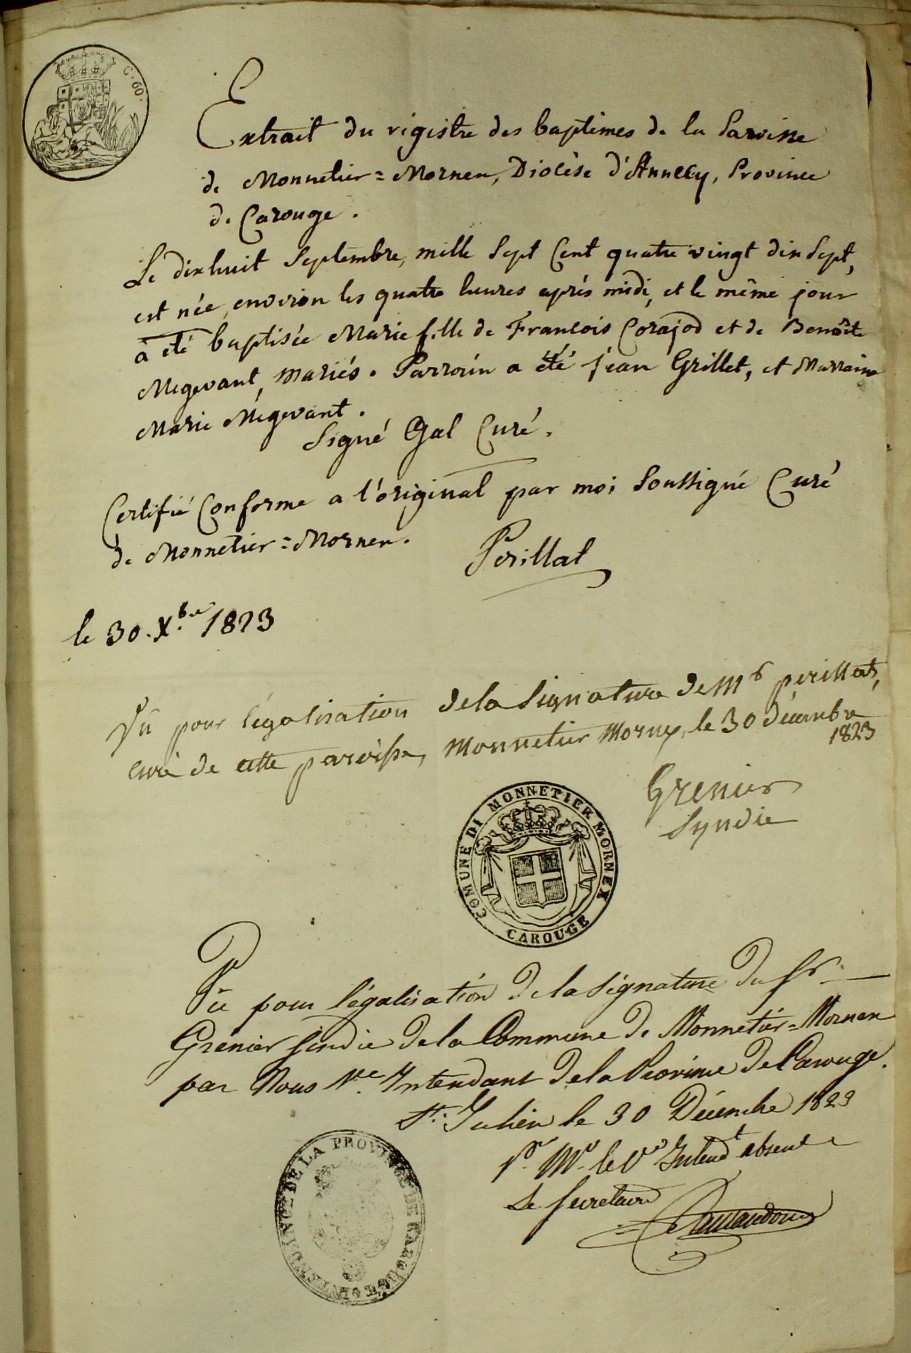 C. 60.
Extrait du rigistre des baptêmes de la Paroisse
de Monnetier=Mornex, Diocèse d'Annecy, Province
de Carouge.
Le dix huit Septembre, mille Sept Cent quatre vingt dix Sept,
est née, environ les quatre heures après midi, et le même jour
a été baptisée Marie fille de François Corajod et de Benoîte
Megevant, mariés. Parrain a été jean Grillet, et Marraine
Marie Megevant.
Signé Gal Curé.
Certifié Conforme a l'original par moi Soussigné Curé
de Monnetier=Mornex.
Perillat
le 30. Xbre 1823
Vu pour légalisation de la Signature de Mr perillat,
curé de cette paroisse, Monnetier Mornex, le 30 décembre
1823
Grenier
Syndic
COMUNE DI MONNETIER MORNEX
CAROUGE
Vu pour légalisation de la signature du Sr
Grenier Sindic de la Commune de Monnetier=Mornex
par Nous Vce Intendant de la Province de Carouge.
St. Julien le 30 Décembre 1823
Pr Mr le Ve Intendt absent
Le Secretaire
INTENDANCE DE LA PROVINCE DE CAROUGE